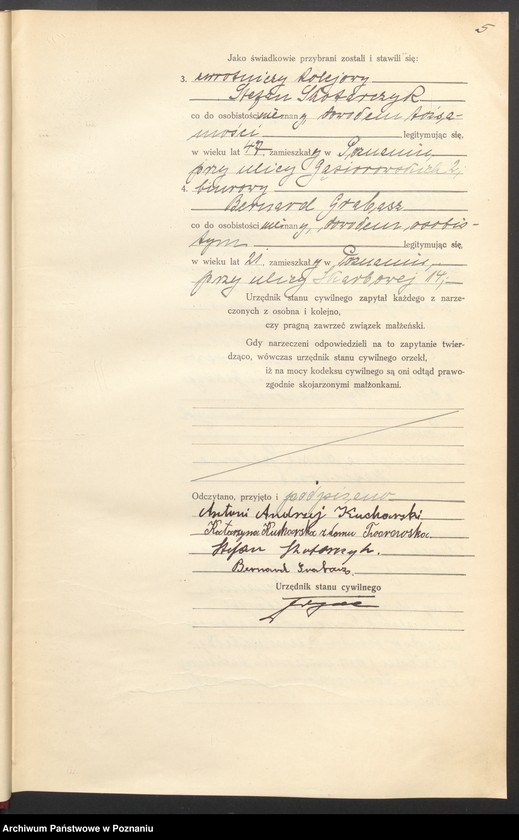 5
Jako świadkowie przybrani zostali i stawili się:
3. zwrotniczy kolejowy
Stefan Skotarczyk
co do osobistości nieznany, dowodem tożsa-
mości legitymując się,
w wieku lat 47, zamieszkały w Poznaniu,
przy ulicy Gąsiorowskich 2,
4. biurowy
Bernard Grabasz
co do osobistości nieznany, dowodem osobis-
tym legitymując się,
w wieku lat 21, zamieszkały w Poznaniu,
przy ulicy Skarbowej 14,-
Urzędnik stanu cywilnego zapytał każdego z narze-
czonych z osobna i kolejno,
czy pragną zawrzeć związek małżeński.
Gdy narzeczeni odpowiedzieli na to zapytanie twier-
dząco, wówczas urzędnik stanu cywilnego orzekł,
iż na mocy kodeksu cywilnego są oni odtąd prawo-
zgodnie skojarzonymi małżonkami.
Odczytano, przyjęto i podpisano
Antoni Andrzej Kucharski
Katarzyna Kucharska z domu Twarowska.
Stefan Skotarczyk.
Bernard Grabasz.
Urzędnik stanu cywilnego
Archiwum Państwowe w Poznaniu